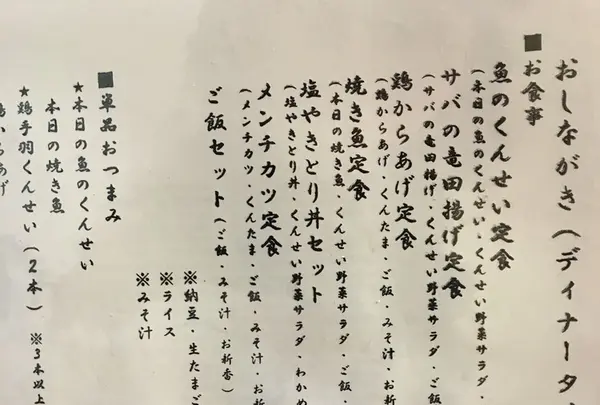 おしながき(ディナータ
■お食事
魚のくんせい定食
(本日の魚のくんせい・くんせい野菜サラダ・
サバの竜田揚げ定食
(サバの竜田揚げ・くんせい野菜サラダ・ご飯
鶏からあげ定食
(鶏からあげ・くんたま・ご飯・みそ汁・お新
焼き魚定食
(本日の焼き魚・くんせい野菜サラダ・ご飯・
塩やきとり丼セット
(塩やきとり丼・くんせい野菜サラダ・わかめ
メンチカツ定食
(メンチカツ・くんたま・ご飯・みそ汁・お新
ご飯セット(ご飯・みそ汁・お新香)
※納豆・生たまご
※ライス
※みそ汁
■単品おつまみ
★本日の魚のくんせい
本日の焼き魚
★鶏手羽くんせい(2本) ※3本以上
鶏からあげ